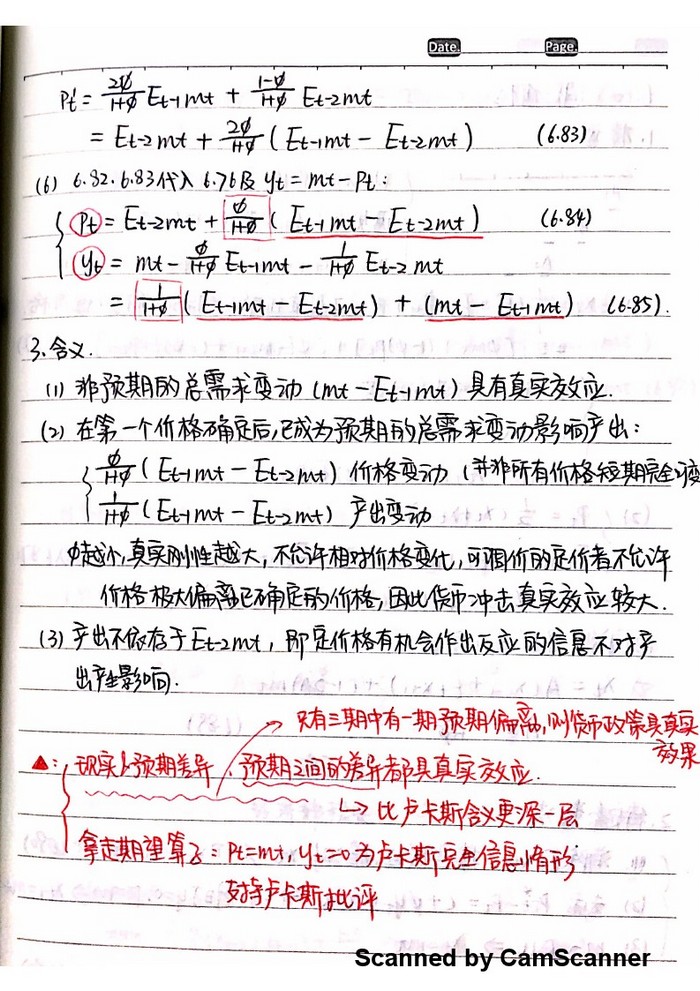 Date.
Page.
Pt² = 2ϕ/1+ϕ Et-1mt + 1-ϕ/1+ϕ Et-2mt
= Et-2mt + 2ϕ/1+ϕ ( Et-1mt - Et-2mt ) (6.83)
(6) 6.82. 6.83代入 6.76及 yt = mt - Pt :
Pt = Et-2mt + ϕ/1+ϕ ( Et-1mt - Et-2mt ) (6.84)
yt = mt - ϕ/1+ϕ Et-1mt - 1/1+ϕ Et-2mt
= 1/1+ϕ ( Et-1mt - Et-2mt ) + (mt - Et-1mt) (6.85).
3.含义.
(1) 非预期的总需求变动 (mt - Et-1mt) 具有真实效应.
(2) 在第一个价格确定后,已成为预期的总需求变动影响产出:
ϕ/1+ϕ ( Et-1mt - Et-2mt ) 价格变动 (并非所有价格短期完全可变
1/1+ϕ ( Et-1mt - Et-2mt ) 产出变动
ϕ越小,真实刚性越大,不允许相对价格变化,可调价的定价者不允许
价格极大偏离已确定的价格,因此货币冲击真实效应较大.
(3) 产出不依存于Et-2mt, 即定价格有机会作出反应的信息不对产
出产生影响.
→ 只有三期中有一期预期偏离,则货币政策具真实
效果
▲: 现实与预期差异、预期之间的差异都具真实效应.
↳ 比卢卡斯含义更深一层
拿走期望算子: Pt=mt, yt=0 为卢卡斯完全信息情形
支持卢卡斯批评
Scanned by CamScanner